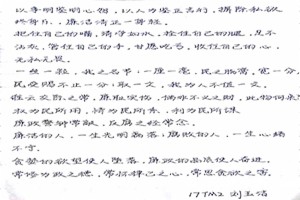 以事明鉴明心智,以人为鉴正言行,摒除私欲
终身乐,廉洁清正一身轻。
把住自己的嘴,清汤如水,拴住自己的腿,足不
沾灰,管住自己的手,甘愿吃亏,收住自己的心,
无私无畏。
一丝一粒,我之名节;一厘一毫,民之脂膏,宽一分,
民受赐不止一分;取一文,我为人不值一文。
谁云交际之常,廉耻实伤,倘非不义之财,此物何来?
权为民所用,情为民所系,利为民所谋
廉政警钟常敲,反腐之经常念。
廉洁的人,一生光明磊落;腐败的人,一生心绪
不宁。
贪婪的欲望使人堕落,廉政的品质使人奋进。
常修为政之德,常怀律己之心,常思贪欲之害。
17TM2 刘玉洁